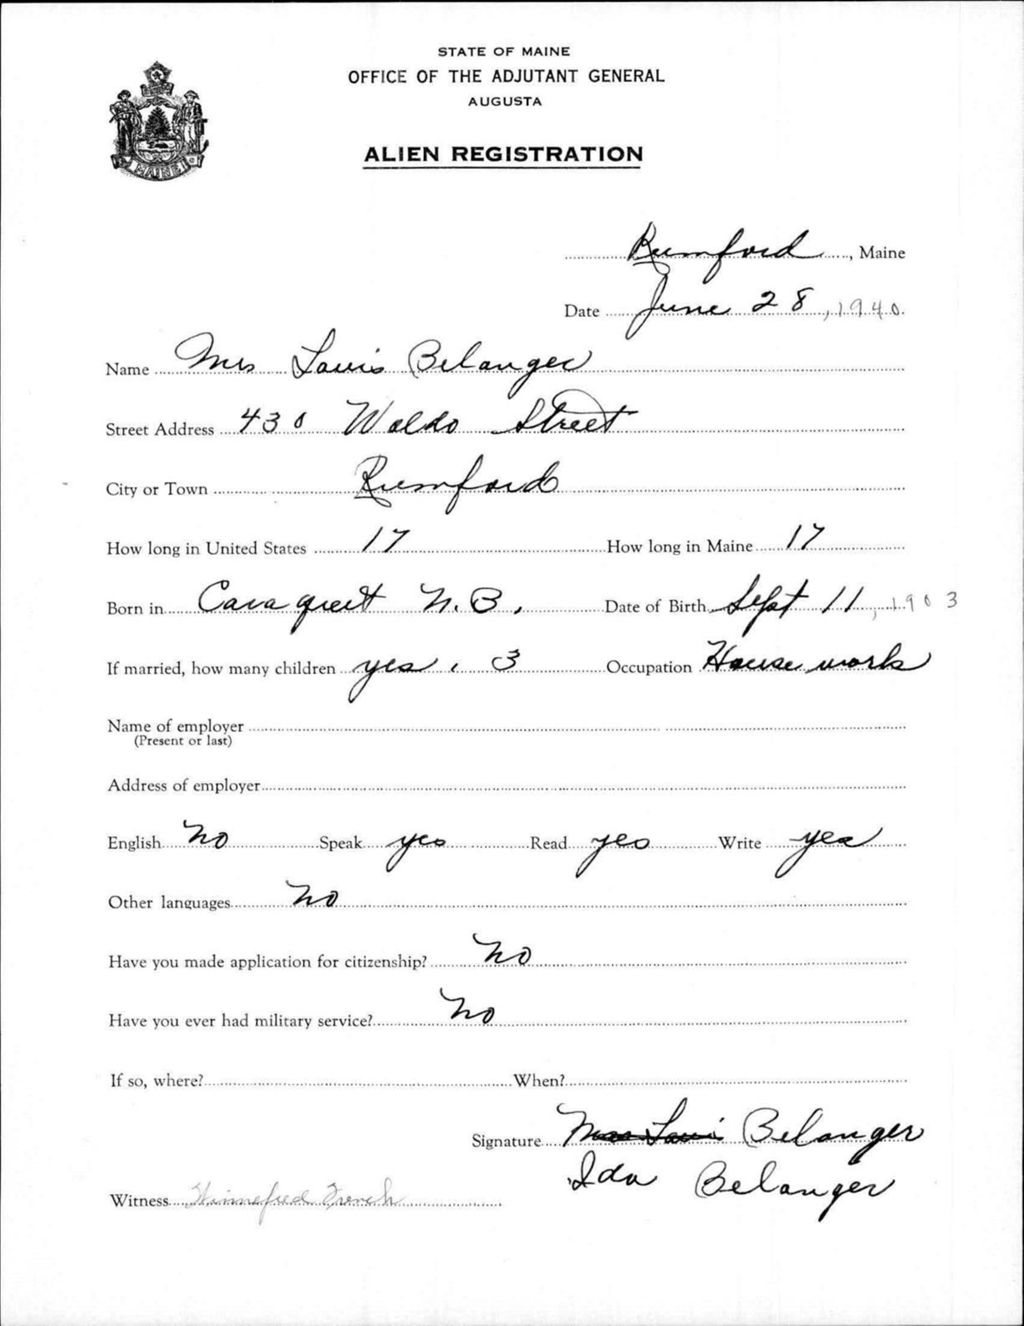 STATE OF MAINE
OFFICE OF THE ADJUTANT GENERAL
AUGUSTA
ALIEN REGISTRATION
MAINE
Rumford, Maine
Date June 28, 1940.
Name Mrs Louis Belanger
Street Address 430 Waldo Street
City or Town Rumford
How long in United States 17 How long in Maine 17
Born in Caraquet N.B. Date of Birth Sept 11, 1903
If married, how many children yes. 3 Occupation House work
Name of employer
(Present or last)
Address of employer
English No Speak yes Read yes Write yes
Other languages No
Have you made application for citizenship? No
Have you ever had military service? No
If so, where? When?
Signature Mrs Louis Belanger
Ida Belanger
Witness Winnefred French